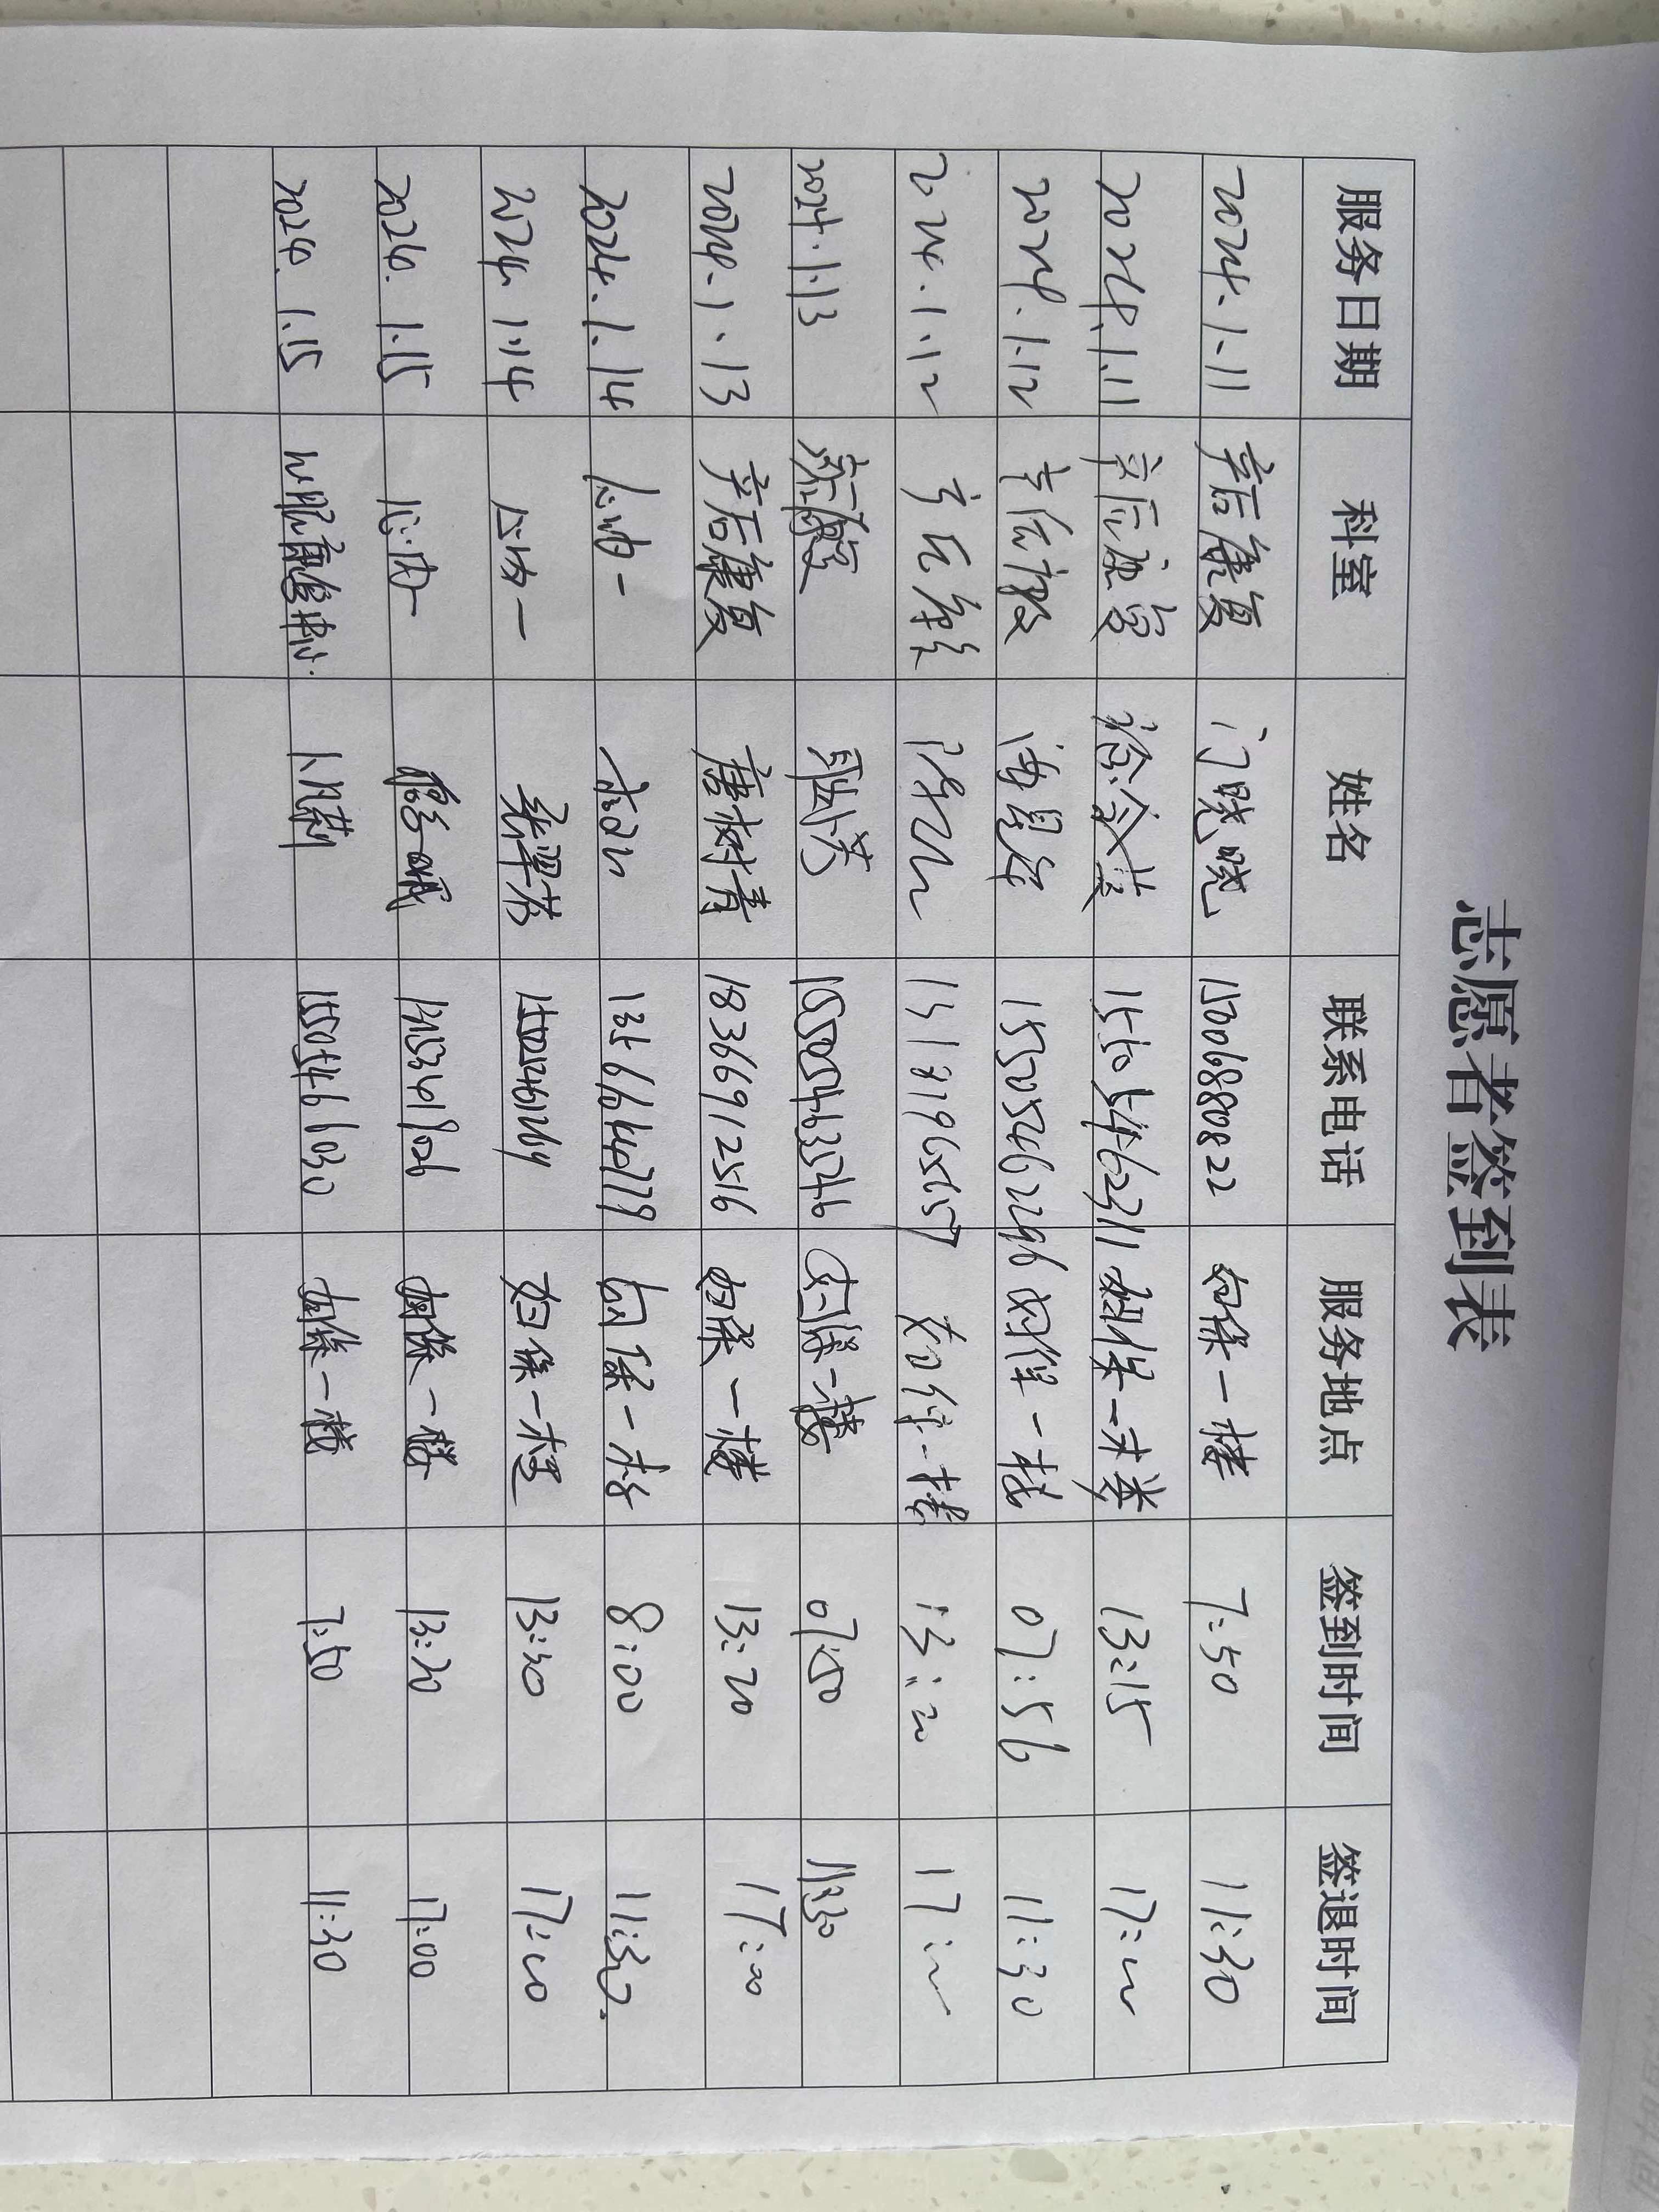 志愿者签到表
服务日期 科室 姓名 联系电话 服务地点 签到时间 签退时间
2024.1.11 产后康复 门晓晓 15006880822 妇保一楼 7:50 11:30
2024.1.11 产后康复 徐金英 15505462311 妇保一楼 13:15 17:00
2024.1.12 产后康复 15505462296 妇保一楼 07:56 11:30
2024.1.12 产后康复 妇保一楼 13:20 17:00
2024.1.13 耿芳 15505463546 妇保一楼 07:50 11:30
2024.1.13 产后康复 唐树青 18366912516 妇保一楼 13:20 17:00
2024.1.14 心内一 妇保一楼 8:00 11:30
2024.1.14 心内一 张翠芳 妇保一楼 13:30 17:00
2024.1.15 心内一 妇保一楼 13:20 17:00
2024.1.15 卜月莉 15505461030 妇保一楼 7:50 11:30